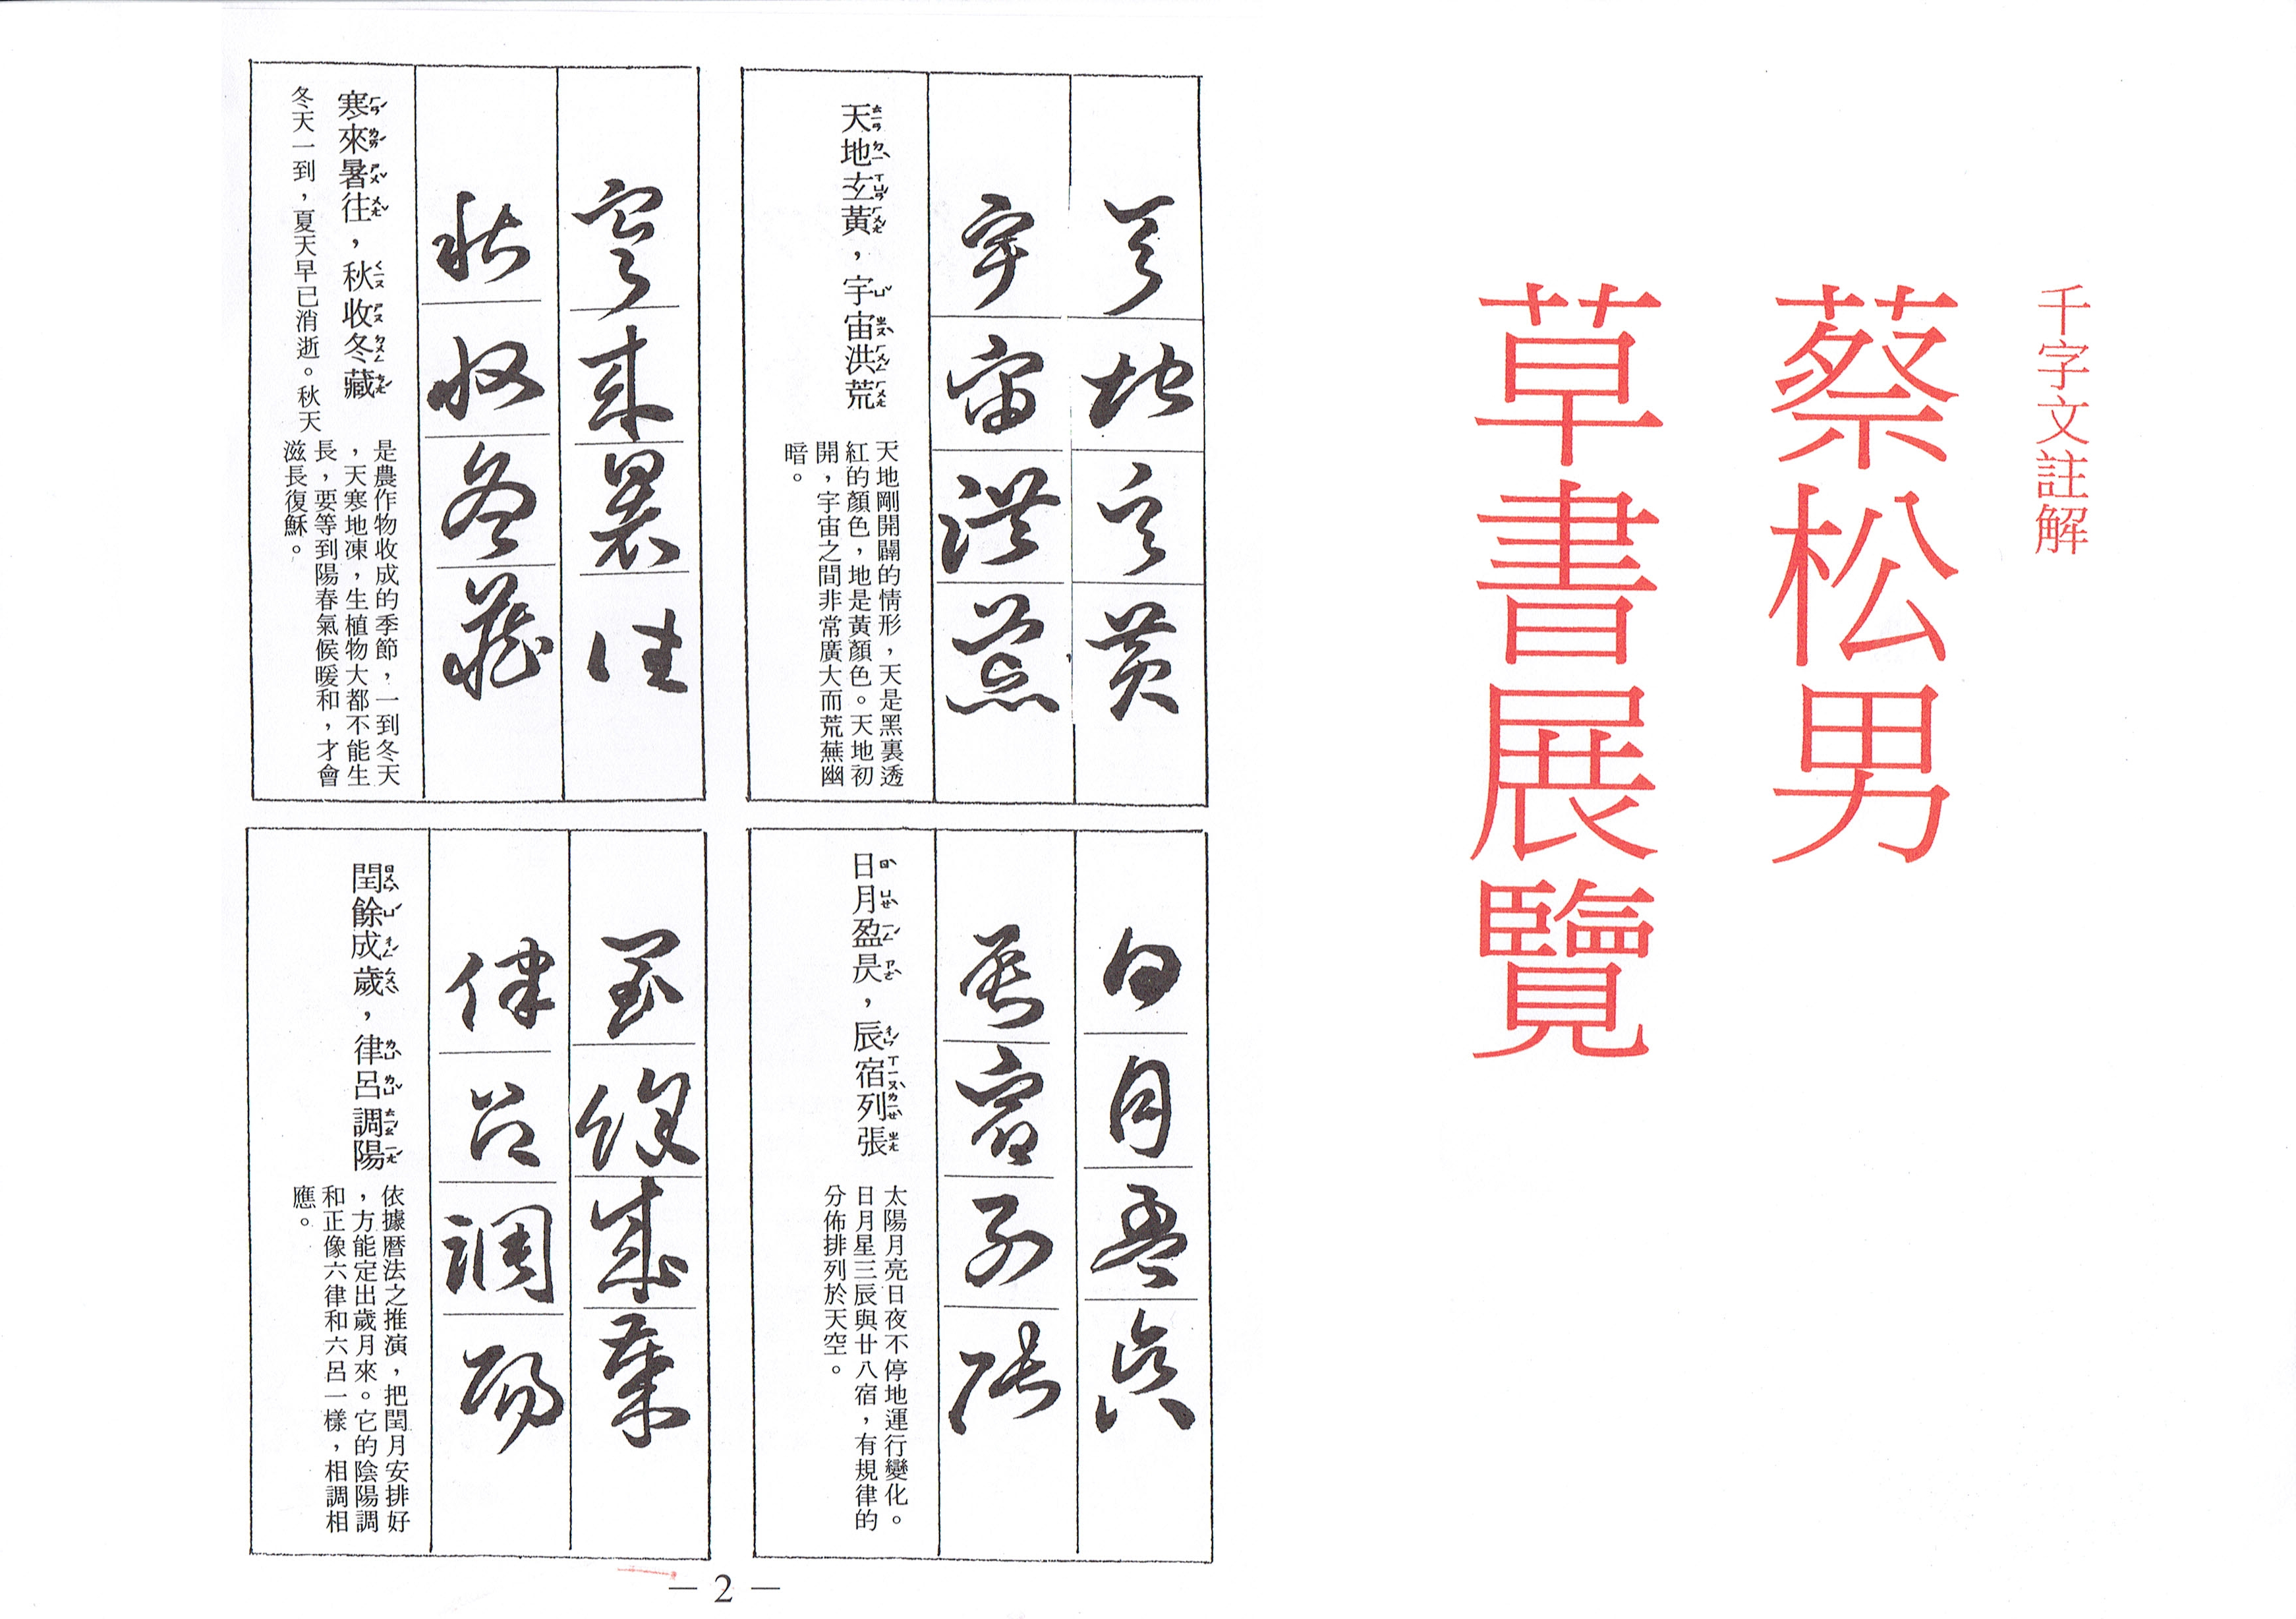 千字文註解
蔡松男
草書展覽
天地玄黃
宇宙洪荒
天地玄黃，宇宙洪荒
ㄊㄧㄢ ㄉㄧˋ ㄒㄩㄢˊ ㄏㄨㄤˊ ㄩˇ ㄓㄡˋ ㄏㄨㄥˊ ㄏㄨㄤ
天地剛開闢的情形，天是黑裏透
紅的顏色，地是黃顏色。天地初
開，宇宙之間非常廣大而荒蕪幽
暗。
寒來暑往
秋收冬藏
寒來暑往，秋收冬藏
ㄏㄢˊ ㄌㄞˊ ㄕㄨˇ ㄨㄤˇ ㄑㄧㄡ ㄕㄡ ㄉㄨㄥ ㄘㄤˊ
冬天一到，夏天早已消逝。秋天
是農作物收成的季節，一到冬天
，天寒地凍，生植物大都不能生
長，要等到陽春氣候暖和，才會
滋長復穌。
日月盈昃
辰宿列張
日月盈昃，辰宿列張
ㄖˋ ㄩㄝˋ ㄧㄥˊ ㄗㄜˋ ㄔㄣˊ ㄒㄧㄡˋ ㄌㄧㄝˋ ㄓㄤ
太陽月亮日夜不停地運行變化。
日月星三辰與廿八宿，有規律的
分佈排列於天空。
閏餘成歲
律呂調陽
閏餘成歲，律呂調陽
ㄖㄨㄣˋ ㄩˊ ㄔㄥˊ ㄙㄨㄟˋ ㄌㄩˋ ㄌㄩˇ ㄊㄧㄠˊ ㄧㄤˊ
依據曆法之推演，把閏月安排好
，方能定出歲月來。它的陰陽調
和正像六律和六呂一樣，相調相
應。
— 2 —